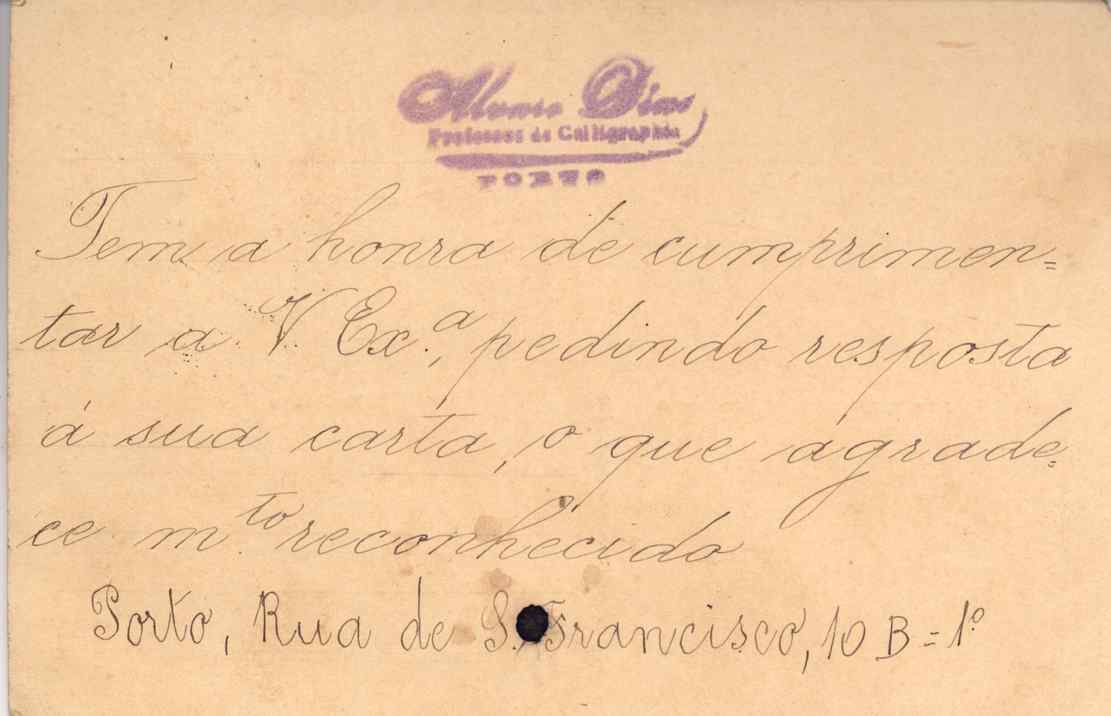 Alvaro Dias
Professor de Calligraphia
PORTO
Tem a honra de cumprimen=
tar a V. Ex.ª, pedindo resposta
á sua carta, o que agrade=
ce m.to reconhecido
Porto, Rua de S. Francisco, 10 B = 1º